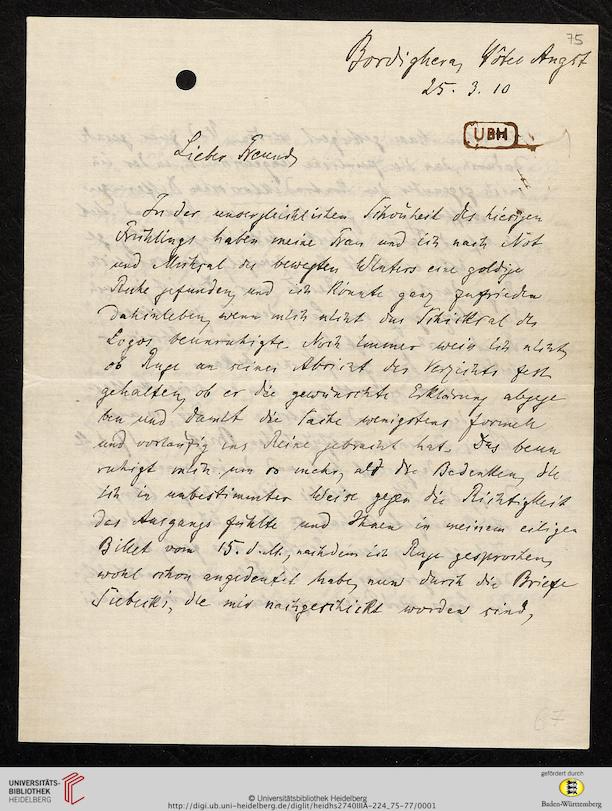 75
Bordighera, Hôtel Angst
25. 3. 10
UBH
Lieber Freund,
In der unvergleichlichen Schönheit des hiesigen
Frühlings haben meine Frau und ich nach Not
und Mühsal des bewegten Winters eine goldige
Ruhe gefunden, und ich könnte ganz zufrieden
dahinleben, wenn mich nicht das Schicksal des
Logos beunruhigte. Noch immer weiss ich nicht,
ob Ruge an seiner Absicht des Verzichts fest
gehalten, ob er die gewünschte Erklärung abgege
ben und damit die Sache wenigstens formell
und vorläufig ins Reine gebracht hat. Das beun
ruhigt mich um so mehr, als die Bedenken, die
ich in unbestimmter Weise gegen die Richtigkeit
des Ausgangs fühlte und Ihnen in meinem eiligen
Billet vom 15. d. M., nachdem ich Ruge gesprochen,
wohl schon angedeutet habe, nun durch die Briefe
Siebecks, die mir nachgeschickt worden sind,
67
UNIVERSITÄTS-
BIBLIOTHEK
HEIDELBERG
© Universitätsbibliothek Heidelberg
http://digi.ub.uni-heidelberg.de/diglit/heidhs2740IIIA-224_75-77/0001
gefördert durch
Baden-Württemberg